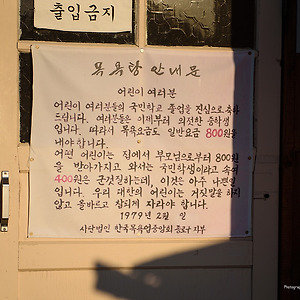 출입금지
목욕탕 안내문
어린이 여러분
어린이 여러분들의 국민학교 졸업을 진심으로 축하
드립니다. 여러분들은 이제부터 의젓한 중학생
입니다. 따라서 목욕요금도 일반요금 800원을
내야합니다.
어떤 어린이는 집에서 부모님으로부터 800원
을 받아가지고 와서는 국민학생이라고 속여
400원은 군것질하는데, 이것은 아주 나쁜일
입니다. 우리 대한의 어린이는 거짓말을 하지
않고 올바르고 참되게 자라야 합니다.
1979년 2월 일
사단법인 한국목욕업중앙회 종로구 지부
Photogra